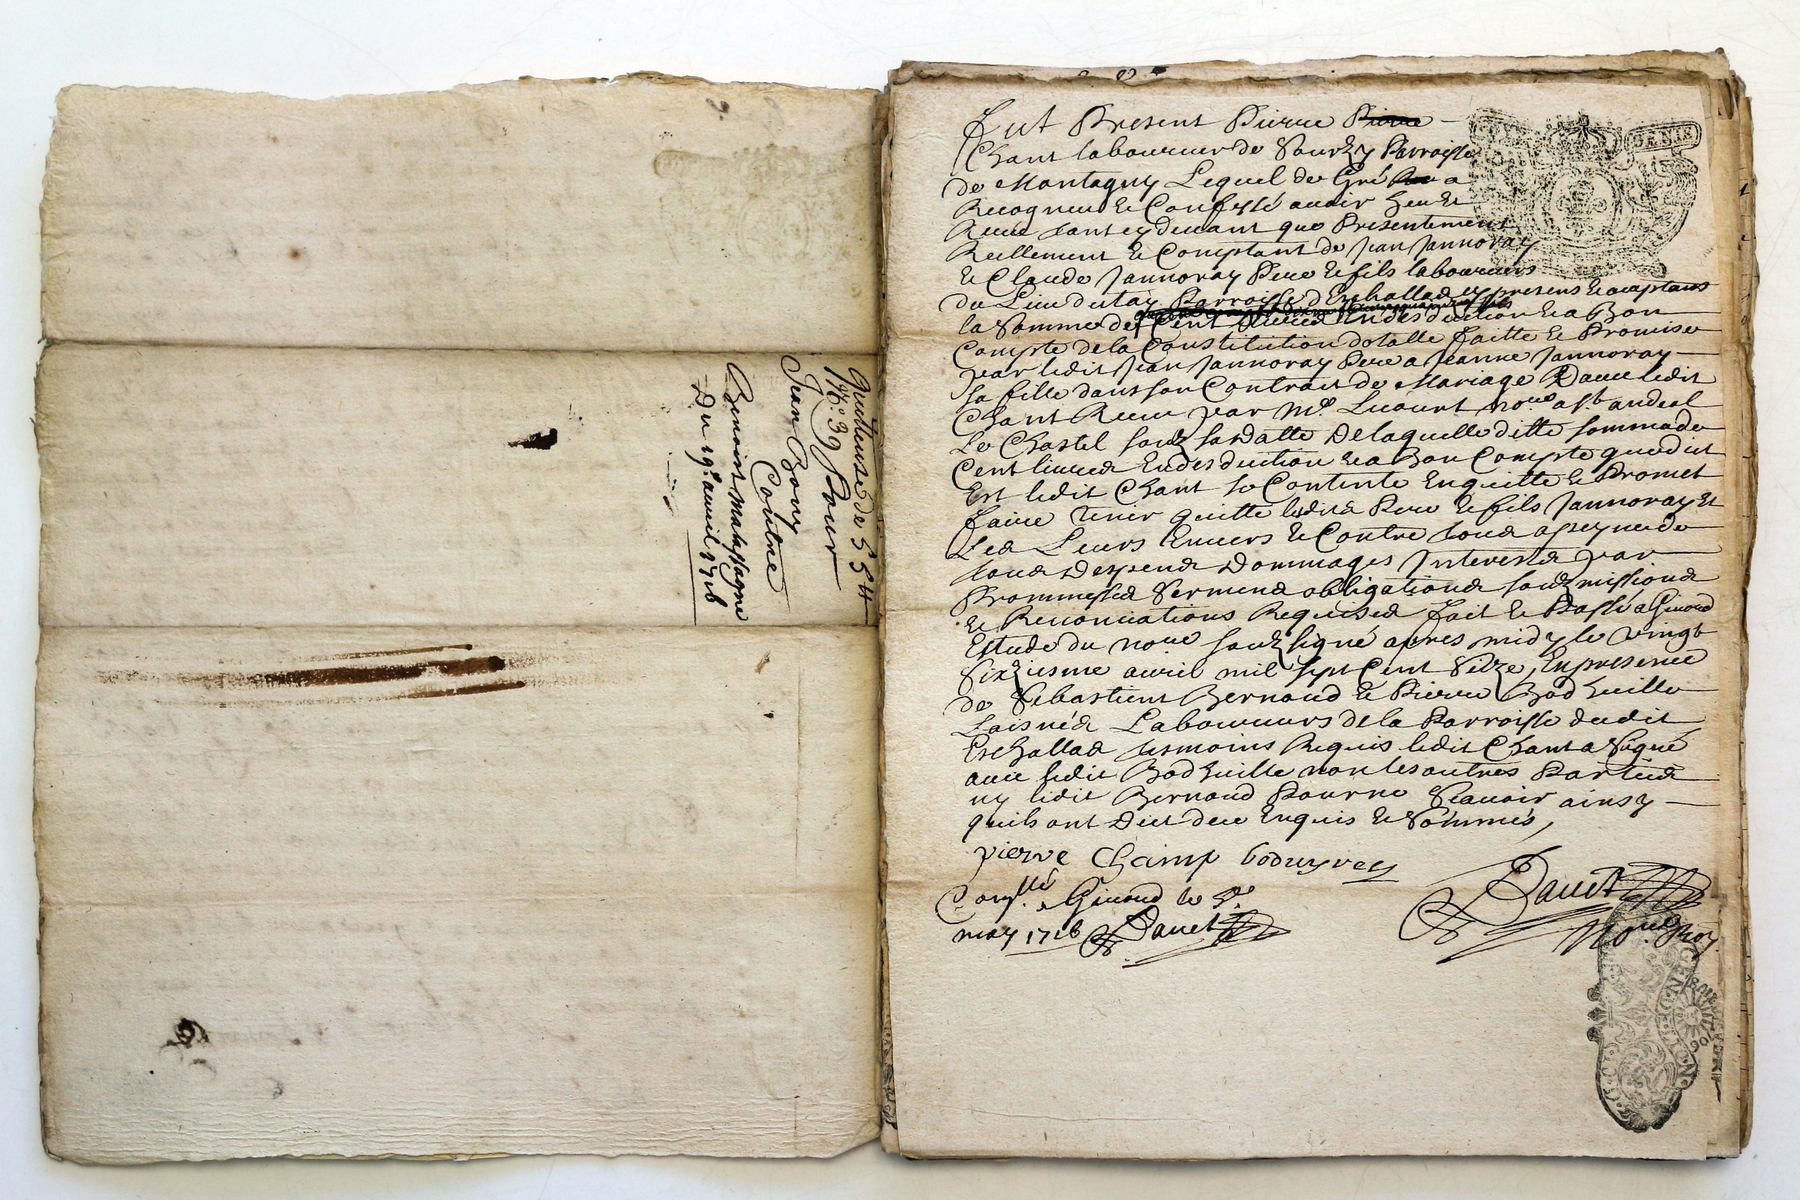 Quittense de 55 ᴴ
N.º 39 Pour
Jean Bony
Contre
Benoist Malassagne
Du 19.e auvril 1716
fut Present Pierre Pierre
Chant laboureur de Sourzy Parroisse
de Montagny Lequel de Gré a
Recogneu & Confessé avoir heu &
Receu tant cy devant que Presentement
Reellement & Comptant de Jean Jannoray
& Claude Jannoray Pere & fils laboureurs
du Lieu dutay Parroisse d'Eschallad cy presens & acceptans
la Somme de Cent livres Endesduction & a Bon
Compte de la Constitution dotalle faitte & Promise
par ledit Jean Jannoray Pere a Jeanne Jannoray
sa fille dans son Contrait de Mariage Dauec ledit
Chant Receu par M.e Licourt no.re
Le Chastel soubz sa Datte De laquelle ditte somme de
Cent livres Endesduction & a Bon Compte que dict
Est ledit Chant se Contente Enquitte & Promet
faire tenir quitte lesdits Pere & fils Jannoray &
Les Leurs Enuers & Contre tous a peyne de
tous Despens Dommages Interests par
Prommesses Serments obligations soubzmissions
& Renonciations Requises fait & Passé a Givord
Estude du no.re soubzsigné apres midy le vingt
Sixziesme auril mil sept Cent Seize, En presence
de Sebastient Bernoud & Pierre Bodhuille
Laisnés Laboureurs de la Parroisse dudit
Eschallad tesmoins Requis ledit Chant a Signé
auec ledit Bodhuille non les autres Parties
ny ledit Bernoud Pour ne Scauoir ainsy
quils ont Dict de ce Enquis & Sommés,
pierre Champ
Danet
Con.llé a Givord le 5.e
may 1716 Danet
GEN. DE LION